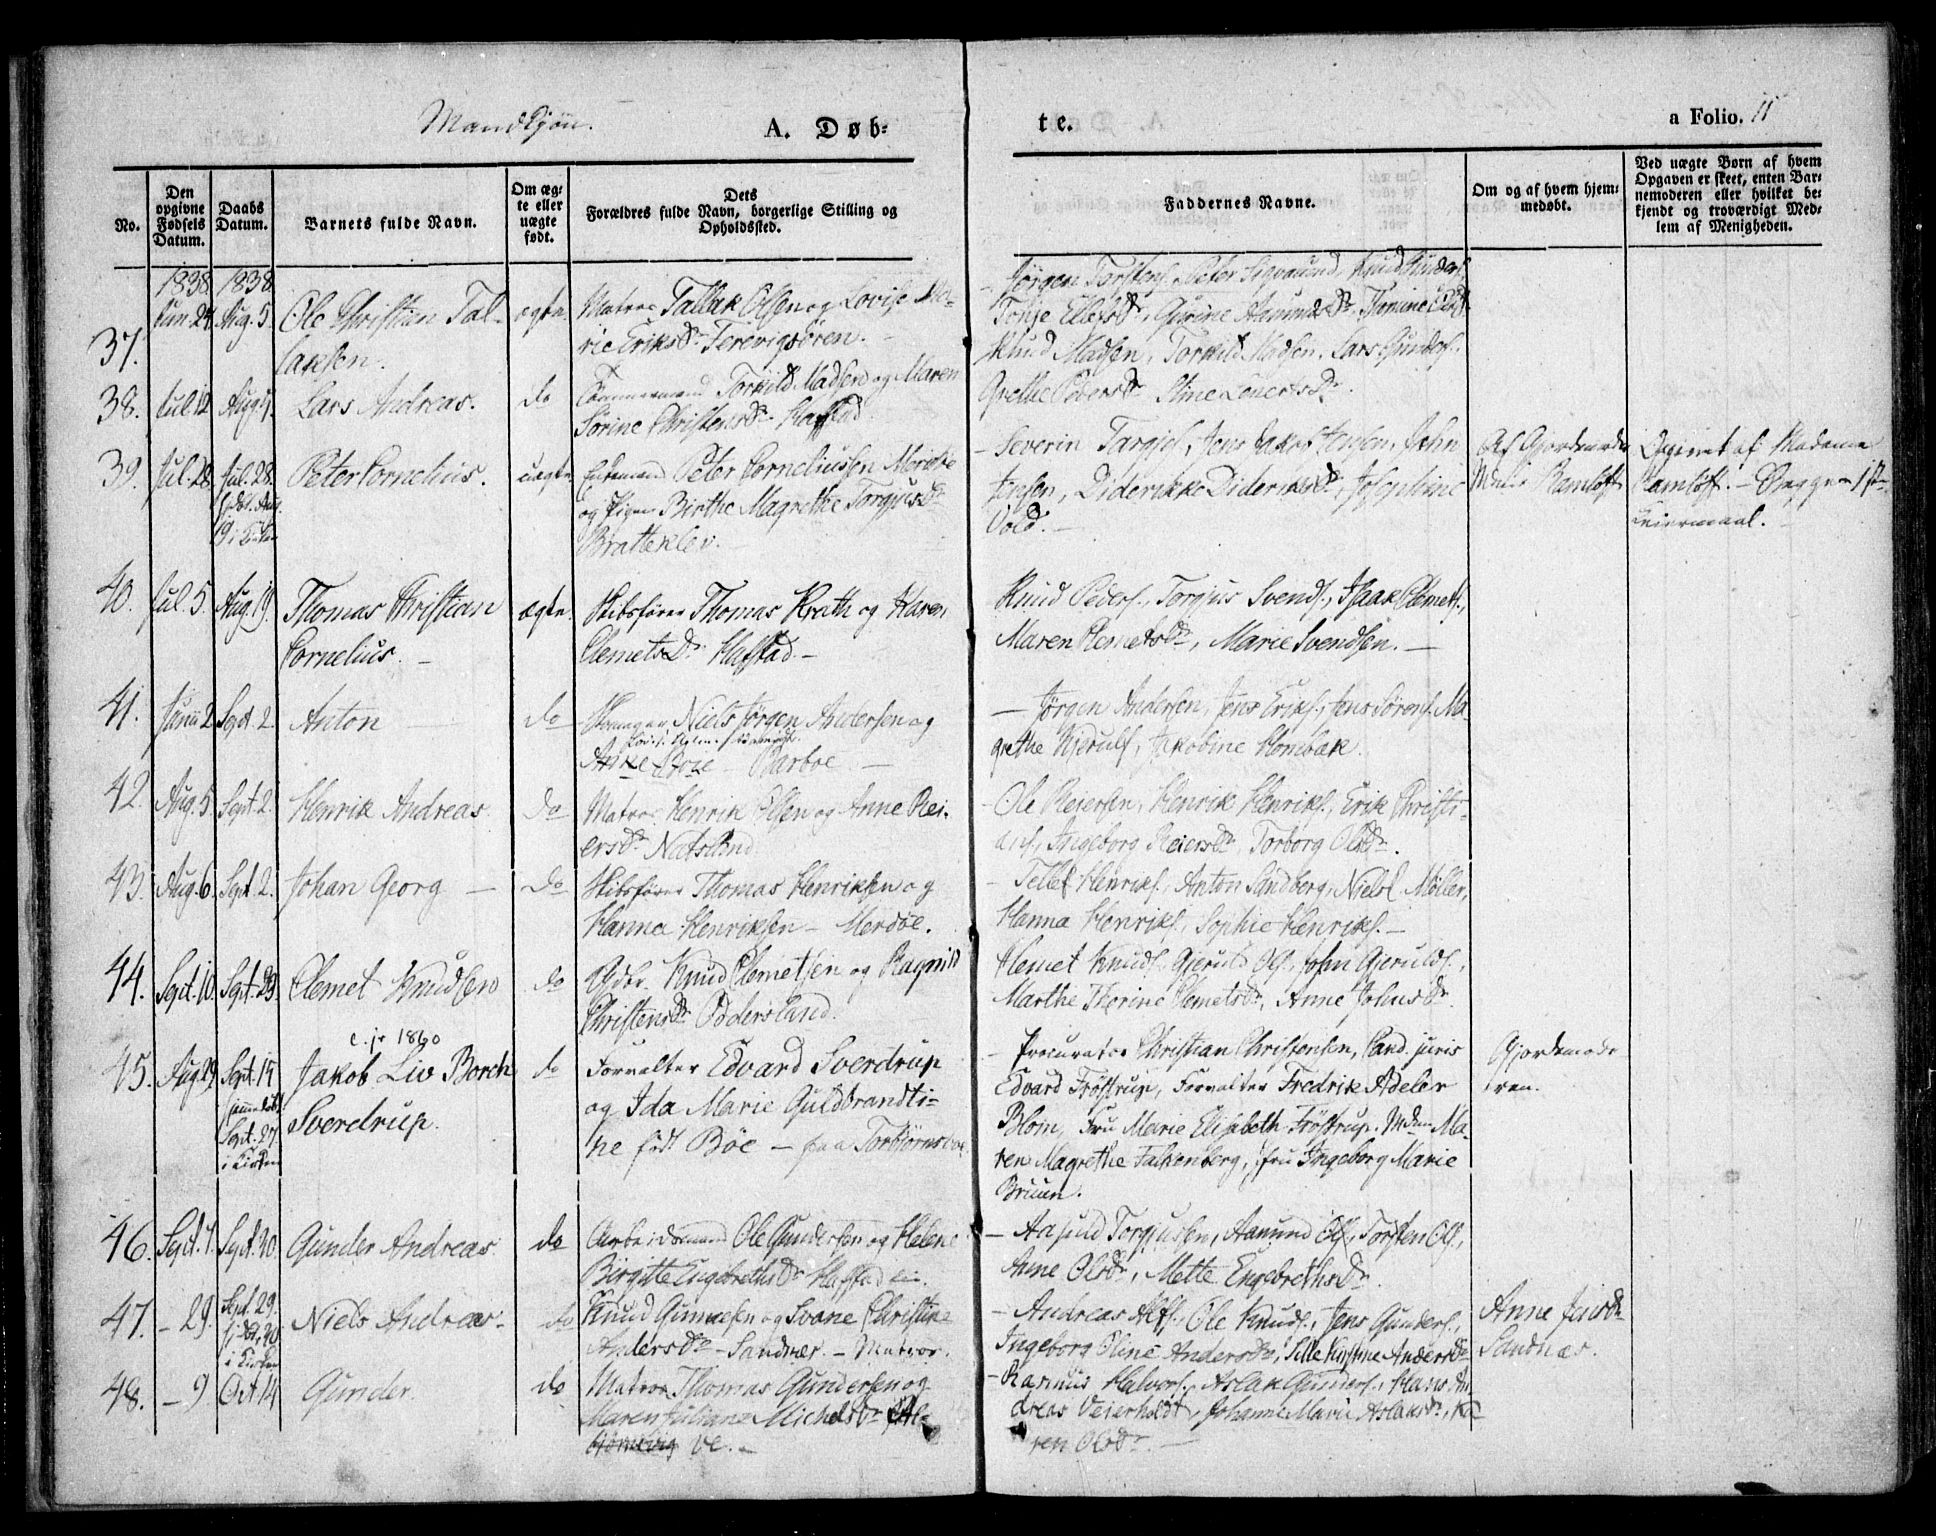 Mandkjøn.
A. Døb-
te.
a Folio. 11
No.
Den opgivne Fødsels Datum.
Daabs Datum.
Barnets fulde Navn.
Om ægte eller uægte født.
Dets
Forældres fulde Navn, borgerlige Stilling og
Opholdssted.
Faddernes Navne.
Om og af hvem hjem-
medøbt.
Ved uægte Børn af hvem
Opgaven er skeet, enten Bar-
nemoderen eller hvilket be-
kjendt og troværdigt Med-
lem af Menigheden.
1838 1838
37. Jun. 24 Aug. 5. Ole Christian Tal-
laksen.
ægte.
Matros Tallak Olsen og Lovise Ma-
rie Eriksdr
Jørgen Torstens., Peter Sigvaund, Knud Gunders.
Gurine Aanundsdr, Thomine
38. Jul. 12 Aug. Lars Andreas. do
Tømmermand Torkild Madsen og Maren
Sørine Christensdr Haffstad
Knud Madsen, Torkild Madsen, Lars Gunders.,
Grethe Pedersdr, Stine
39. Jul. 28 Jul. 28. Peter Cornelius. uægte
Peter Corneliussen Merdøe
og Pigen Birthe Magrethe Torgjusdr
Bratteklev.
Severin Targjes., Jens Jakob Jensen, John
Jensen, Diderikke Dideriksdr, Josephine
Vold.
Af Gjordemoder
Ramløff
Opgivet af Madame
Ramløff. – Begges 1ste
Leiermaal.
40. Jul. 5. Aug. 19. Thomas Christian
Cornelius.
ægte.
Skibsfører Thomas Krath og Karen
Clemetsdr Haffstad
Knud Peders., Torgjus Svends., Isaak Clemets.,
Maren Clemetsdr, Marie Svendsen.
41. Junii 2 Sept. 2. Anton do
Niels Jørgen Andersen og
Anne Boie – Barboe
Jørgen Andersen, Jens Eriks., Jens Sørens., Ma-
grethe Kjerulf, Jakobine Hombak.
42. Aug. 5 Sept. 2. Henrik Andreas do
Matros Henrik Olsen og Anne Rei-
ersdr Natsland
Ole Reiersen, Henrik Henriks., Erik Christi-
ans., Ingeborg Reiersdr, Torborg Olsdr.
43. Aug. 6. Sept. 2. Johan Georg do
Skibsfører Thomas Henriksen og
Hanna Henriksen – Merdøe.
Tellef Henriks., Anton Sandberg, Niels Møller,
Hanna Henriks., Sophie Henriks.
44. Sept. 10. Sept. 23. Clemet Knudsen do
Gdbr. Knud Clemetsen og Ragnild
Christensdr Oddersland.
Clemet Knuds., Gjeruld Ols., John Gjerulds.,
Marthe Therine Clemetsdr, Anne Johnsdr
c. jr 1860
45. Aug. 29 Sept. 15 Jakob Liv Borch
Sverdrup.
do
Forvalter Edvard Sverdrup
og Ida Marie Guldbrandti-
ne født Bøe – paa Torbjørnsboe.
Procurator Christian Christensen, Cand. juris
Edvard Frøstrup, Forvalter Fredrik Adelør
Blom, Fru Marie Elisabeth Frøstrup, Mdm Ma-
ren Magrethe Falkenberg, Fru Ingeborg Marie
Bruun.
Gjordemode-
ren.
Sept. 27
i Kirken
46. Sept. 1. Sept. 30. Gunder Andreas do
Arbeidsmand Ole Gundersen og Helene
Birgitte Engebrethsdr Haffstad
Aasuld Torgjussen, Aanund Ols., Torsten Ols.,
Anne Olsdr, Mette Engebrethsdr
47. – 29. Sept. 29. Niels Andreas do
i Kirken
Knud Gunnesen og Svane Christine
Andersdr – Sandnæs. – Matros.
Andreas Alfs., Ole Knuds., Jens Gunders.,
Ingeborg Oline Andersdr, Sille Kirstine Andersdr
Anne
Sandnæs.
48. – 9 Oct. 14 Gunder. do
Matros Thomas Gundersen og
Maren Juliane Michelsdr Al-
ve. –
Rasmus Halvors., Aslak Gunders., Hans An-
dreas Veierholdt, Johanne Marie Aslaksdr, Ka-
ren Olsdr. –